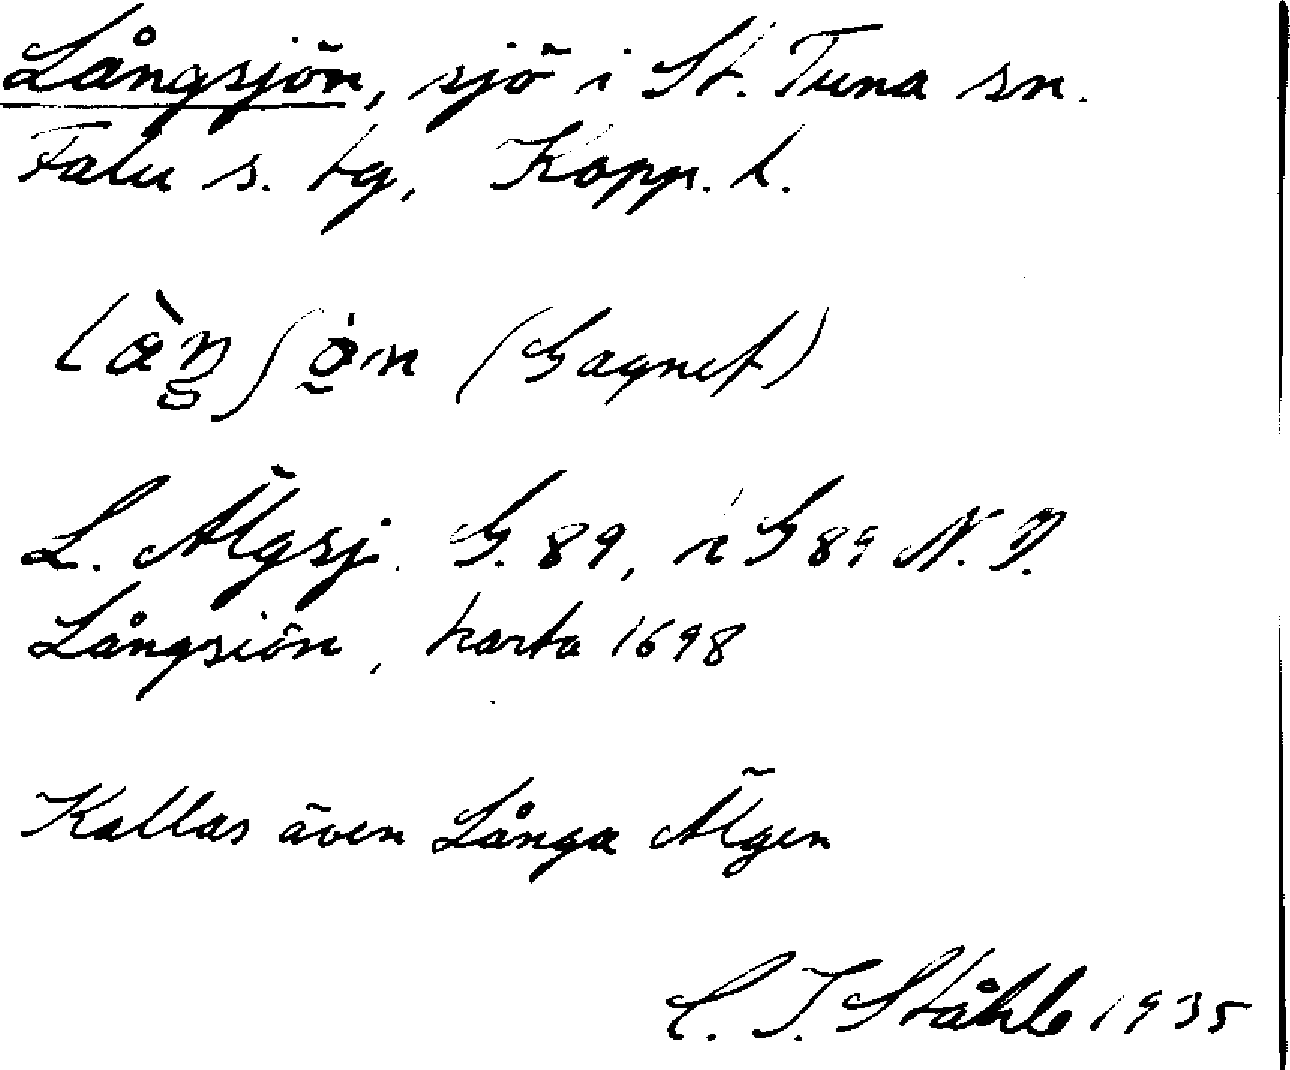 Långsjön, sjö i St. Tuna sn.
Falu s. tg, Kopp. l.
(Gagnef)
L. Älgsj. G. 89, i G 89 N. V.
Långsiön, karta 1698
Kallas även Långa Älgen
C. I. Ståhle 1935